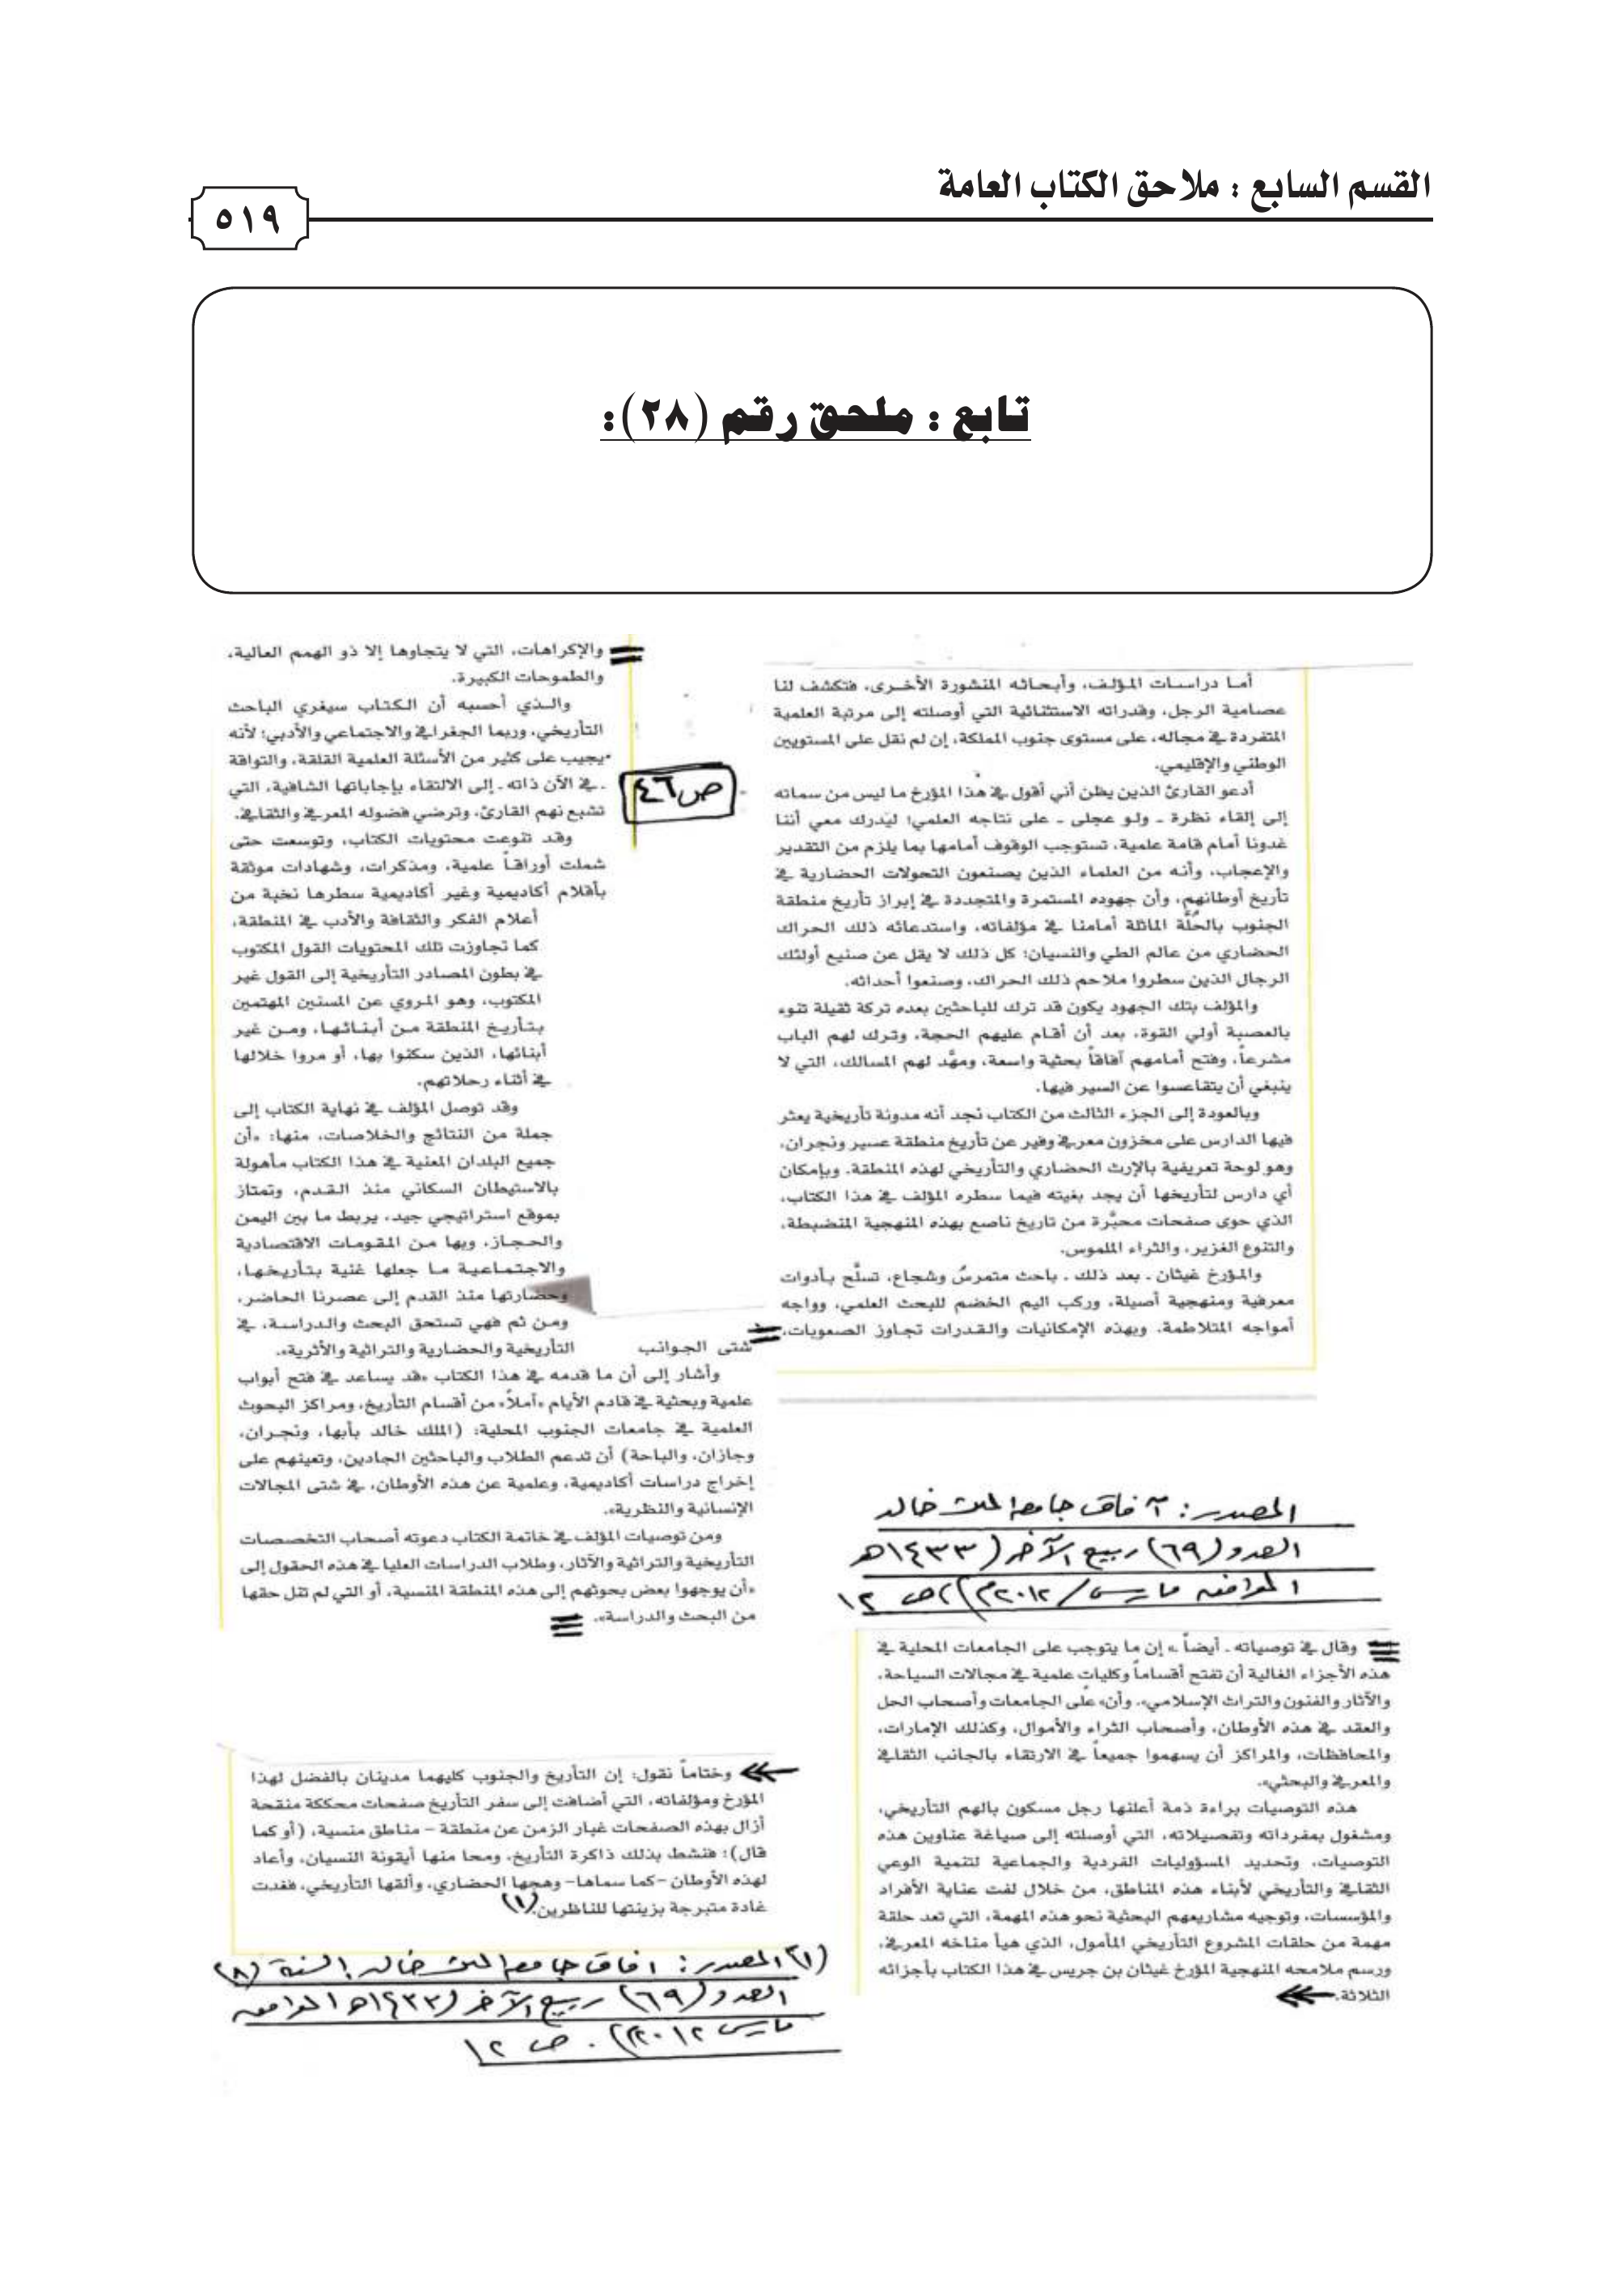 القسم السابع : ملاحق الكتاب العامة
٥١٩
تابع : ملحق رقم (٢٨):
أما دراسات المؤلف، وأبحاثه المنشورة الأخرى، فتكشف لنا
عصامية الرجل، وقدراته الاستثنائية التي أوصلته إلى مرتبة العلمية
المتفردة في مجاله، على مستوى جنوب المملكة، إن لم نقل على المستويين
الوطني والإقليمي.
أدعو القارئ الذين يظن أني أقول في هذا المؤرخ ما ليس من سماته
إلى إلقاء نظرة - ولو عجلى - على نتاجه العلمي؛ ليدرك معي أننا
غدونا أمام قامة علمية، تستوجب الوقوف أمامها بما يلزم من التقدير
والإعجاب، وأنه من العلماء الذين يصنعون التحولات الحضارية في
تأريخ أوطانهم، وأن جهوده المستمرة والمتجددة في إبراز تأريخ منطقة
الجنوب بالحُلَّة الماثلة أمامنا في مؤلفاته، واستدعائه ذلك الحراك
الحضاري من عالم الطي والنسيان؛ كل ذلك لا يقل عن صنيع أولئك
الرجال الذين سطروا ملاحم ذلك الحراك، وصنعوا أحداثه.
والمؤلف بتك الجهود يكون قد ترك للباحثين بعده تركة ثقيلة تنوء
بالعصبة أولي القوة، بعد أن أقام عليهم الحجة، وترك لهم الباب
مشرعاً، وفتح أمامهم آفاقاً بحثية واسعة، ومهّد لهم المسالك، التي لا
ينبغي أن يتقاعسوا عن السير فيها.
وبالعودة إلى الجزء الثالث من الكتاب نجد أنه مدونة تأريخية يعثر
فيها الدارس على مخزون معرفي وفير عن تأريخ منطقة عسير ونجران،
وهو لوحة تعريفية بالإرث الحضاري والتأريخي لهذه المنطقة. وبإمكان
أي دارس لتأريخها أن يجد بغيته فيما سطره المؤلف في هذا الكتاب،
الذي حوى صفحات محبّرة من تاريخ ناصع بهذه المنهجية المنضبطة،
والتنوع الغزير، والثراء الملموس.
والمؤرخ غيثان - بعد ذلك - باحث متمرسٌ وشجاع، تسلَّح بأدوات
معرفية ومنهجية أصيلة، وركب اليم الخضم للبحث العلمي، وواجه
أمواجه المتلاطمة، وبهذه الإمكانيات والقدرات تجاوز الصعوبات،
ص٤٦
والإكراهات، التي لا يتجاوها إلا ذو الهمم العالية،
والطموحات الكبيرة.
والذي أحسبه أن الكتاب سيغري الباحث
التأريخي، وربما الجغرافي والاجتماعي والأدبي؛ لأنه
يجيب على كثير من الأسئلة العلمية القلقة، والتواقة
- في الآن ذاته - إلى الالتقاء بإجاباتها الشافية، التي
تشبع نهم القارئ، وترضي فضوله المعرفي والثقافي.
وقد تنوعت محتويات الكتاب، وتوسعت حتى
شملت أوراقاً علمية، ومذكرات، وشهادات موثقة
بأقلام أكاديمية وغير أكاديمية سطرها نخبة من
أعلام الفكر والثقافة والأدب في المنطقة،
كما تجاوزت تلك المحتويات القول المكتوب
في بطون المصادر التأريخية إلى القول غير
المكتوب، وهو المروي عن المسنين المهتمين
بتأريخ المنطقة من أبنائها، ومن غير
أبنائها، الذين سكنوا بها، أو مروا خلالها
في أثناء رحلاتهم.
وقد توصل المؤلف في نهاية الكتاب إلى
جملة من النتائج والخلاصات، منها: «أن
جميع البلدان المعنية في هذا الكتاب مأهولة
بالاستيطان السكاني منذ القدم، وتمتاز
بموقع استراتيجي جيد، يربط ما بين اليمن
والحجاز، وبها من المقومات الاقتصادية
والاجتماعية ما جعلها غنية بتأريخها،
وحضارتها منذ القدم إلى عصرنا الحاضر،
ومن ثم فهي تستحق البحث والدراسة، في
شتى الجوانب التأريخية والحضارية والتراثية والأثرية».
وأشار إلى أن ما قدمه في هذا الكتاب «قد يساعد في فتح أبواب
علمية وبحثية في قادم الأيام «أملاً» من أقسام التأريخ، ومراكز البحوث
العلمية في جامعات الجنوب المحلية: (الملك خالد بأبها، ونجران،
وجازان، والباحة) أن تدعم الطلاب والباحثين الجادين، وتعينهم على
إخراج دراسات أكاديمية، وعلمية عن هذه الأوطان، في شتى المجالات
الإنسانية والنظرية».
ومن توصيات المؤلف في خاتمة الكتاب دعوته أصحاب التخصصات
التأريخية والتراثية والآثار، وطلاب الدراسات العليا في هذه الحقول إلى
«أن يوجهوا بعض بحوثهم إلى هذه المنطقة المنسية، أو التي لم تنل حقها
من البحث والدراسة».
المصدر : آفاق جامعة الملك خالد
العدد (٦٩) ربيع الآخر (١٤٣٣هـ
الموافق مارس/٢٠١٢م) ص ١٢
وقال في توصياته - أيضاً «إن ما يتوجب على الجامعات المحلية في
هذه الأجزاء الغالية أن تفتح أقساماً وكليات علمية في مجالات السياحة،
والآثار والفنون والتراث الإسلامي»، وأن «على الجامعات وأصحاب الحل
والعقد في هذه الأوطان، وأصحاب الثراء والأموال، وكذلك الإمارات،
والمحافظات، والمراكز أن يسهموا جميعاً في الارتقاء بالجانب الثقافي
والمعرفي والبحثي».
هذه التوصيات براءة ذمة أعلنها رجل مسكون بالهم التأريخي،
ومشغول بمفرداته وتفصيلاته، التي أوصلته إلى صياغة عناوين هذه
التوصيات، وتحديد المسؤوليات الفردية والجماعية لتنمية الوعي
الثقافي والتأريخي لأبناء هذه المناطق، من خلال لفت عناية الأفراد
والمؤسسات، وتوجيه مشاريعهم البحثية نحو هذه المهمة، التي تعد حلقة
مهمة من حلقات المشروع التأريخي المأمول، الذي هيأ مناخه المعرفي،
ورسم ملامحه المنهجية المؤرخ غيثان بن جريس في هذا الكتاب بأجزائه
الثلاثة.
وختاماً نقول: إن التأريخ والجنوب كليهما مدينان بالفضل لهذا
المؤرخ ومؤلفاته، التي أضافت إلى سفر التأريخ صفحات محككة منقحة
أزال بهذه الصفحات غبار الزمن عن منطقة – مناطق منسية، (أو كما
قال)؛ فنشط بذلك ذاكرة التأريخ، ومحا منها أيقونة النسيان، وأعاد
لهذه الأوطان –كما سماها– وهجها الحضاري، وألقها التأريخي، فغدت
غادة متبرجة بزينتها للناظرين.(١)
(١) المصدر : آفاق جامعة الملك خالد، السنة (٨)
العدد (٦٩) ربيع الآخر (١٤٣٣هـ الموافق
مارس ٢٠١٢م) . ص ١٢